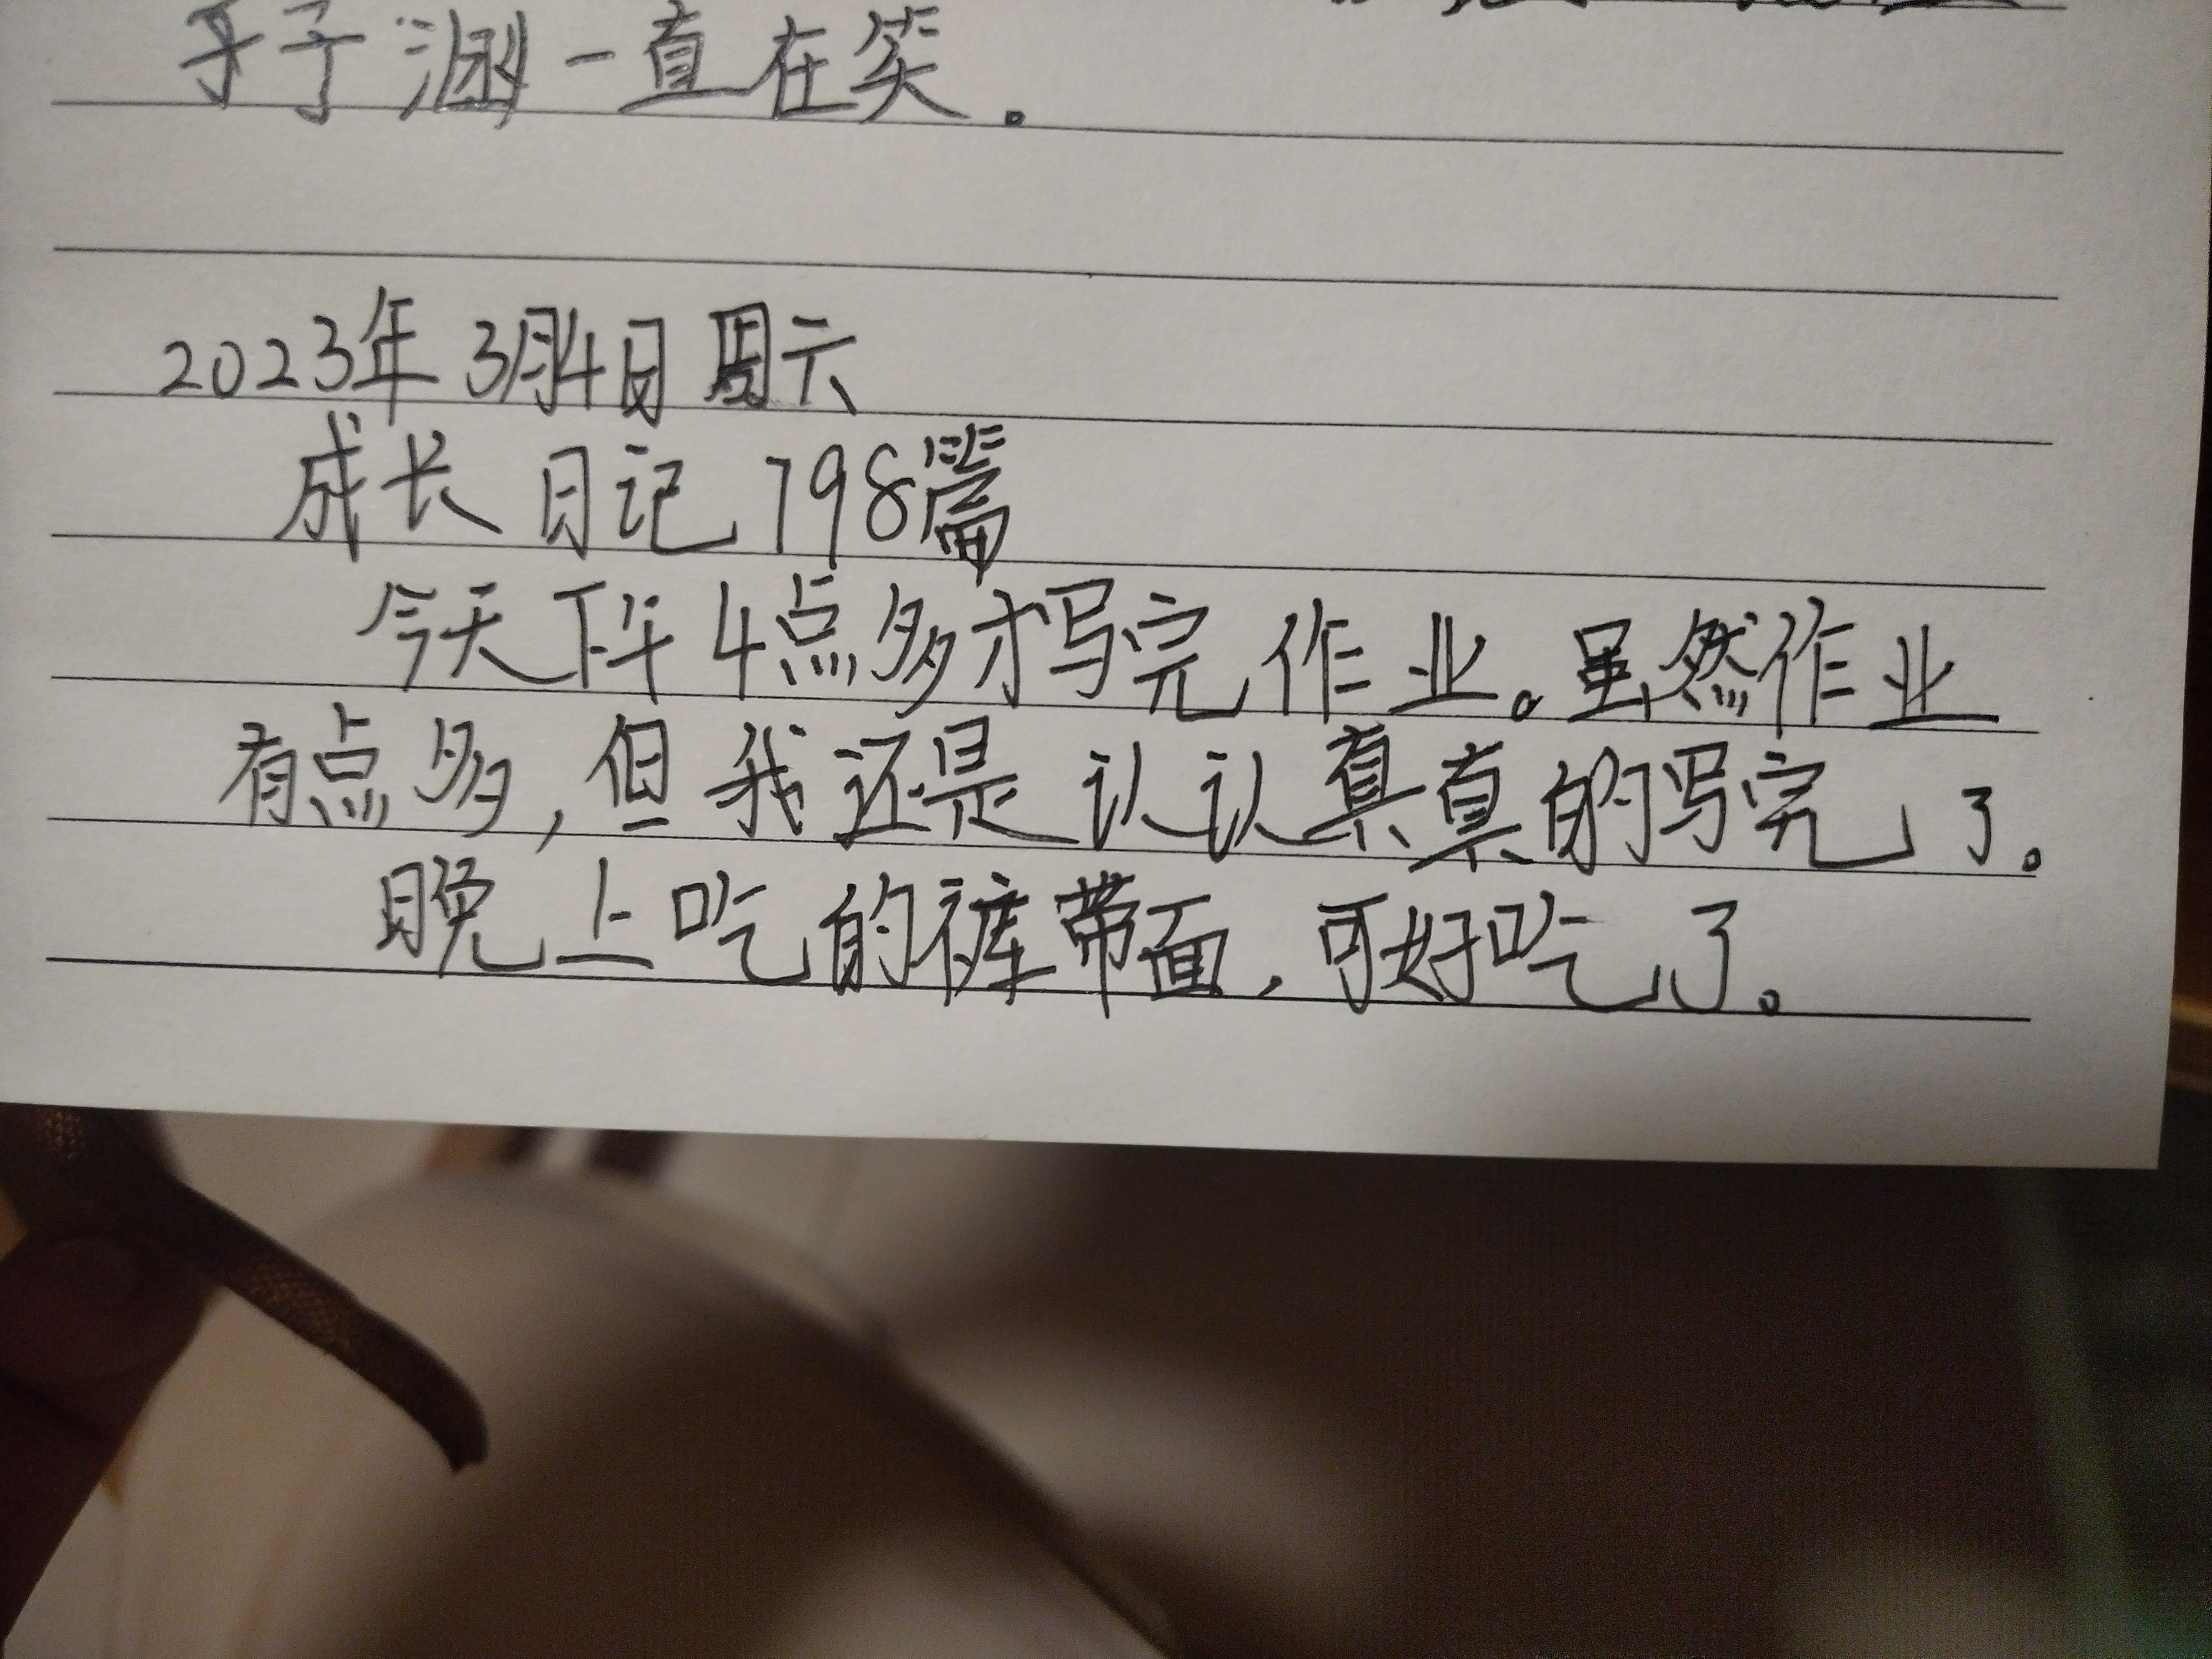 子涵一直在笑。
2023年3月4日周六
成长日记798篇
今天下午4点多才写完作业。虽然作业
有点多,但我还是认认真真的写完了。
晚上吃的裤带面,可好吃了。